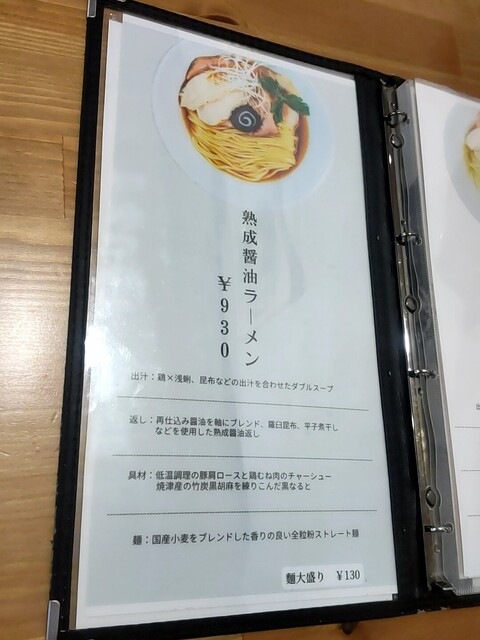 熟成醤油ラーメン
￥930
出汁：鶏×浅蜊、昆布などの出汁を合わせたダブルスープ
返し：再仕込み醤油を軸にブレンド、羅臼昆布、平子煮干し
などを使用した熟成醤油返し
具材：低温調理の豚肩ロースと鶏むね肉のチャーシュー
焼津産の竹炭黒胡麻を練りこんだ黒なると
麺：国産小麦をブレンドした香りの良い全粒粉ストレート麺
麺大盛り　￥130